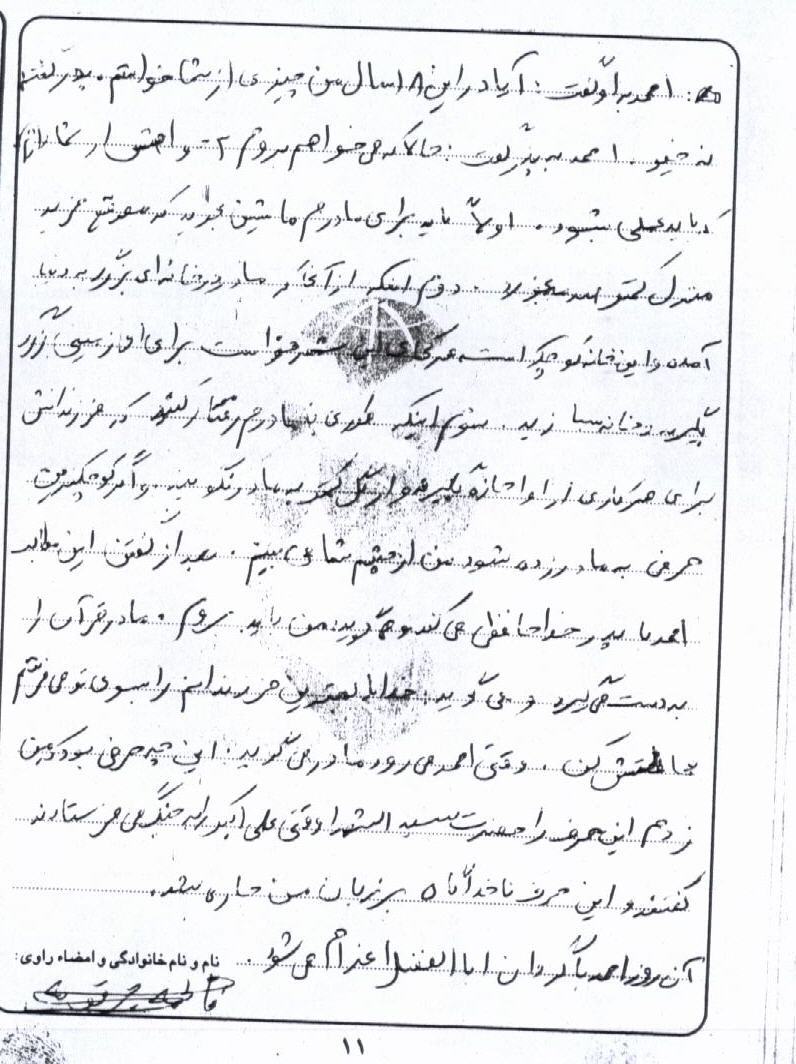 احمد به او گفت: آیا در این ۱۸ سال من چیزی از شما خواستم. پدر گفت
نه خیر. احمد به پدر گفت: حالا که می خواهم بروم ۲ خواهش از شما دارم
که باید عملی بشود. اولاً باید برای مادرم ماشین بخرید که موقع خرید
مشکل کمتر بخورد. دوم اینکه از آنجا مادر در خانه ای بزرگ به دنیا
آمده و این خانه کوچک است هر کجای این شهر خواست برای او زمینی بزرگ
بگیرید و خانه بسازید. سوم اینکه طوری با مادرم رفتار کنید که فرزندانش
برای هر کاری از او اجازه بگیرند و از گل کمتر به مادر نگویند. و اگر کوچکترین
حرفی به مادر زده شود من از چشم شما می بینم. بعد از گفتن این مطالب
احمد با پدر خداحافظی می کند و می گوید: من باید بروم. مادر قرآن را
به دست می گیرد و می گوید: خدایا بهترین فرزندانم را بسوی تو می فرستم
حافظش کن. وقتی احمد می رود مادر می گوید: این چه حرفی بود که من
زدم این حرف را حضرت سید الشهدا وقتی علی اکبر را به جنگ می فرستادند
گفتند و این حرف ناخدآگاه بر زبان من جاری شد.
آن روز احمد با گردان ابا الفضل اعزام می شود.
نام و نام خانوادگی و امضاء راوی:
۱۱